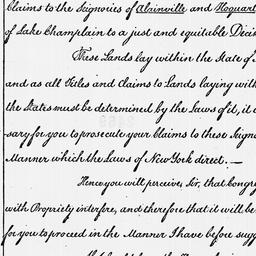 Claims to the Seignories of Alainville and Hocquart
of Lake Champlain to a just and equitable Decis
These Lands lay within the State of
and as all Titles and Claims to Lands laying with
the States must be determined by the Laws of it, it
sary for you to prosecute your Claims to these Seigno
Manner which the Laws of New York direct.—
Hence you will perceive, Sir, that Congre
with Propriety interfere, and therefore that it will be
for you to proceed in the Manner I have before sugg